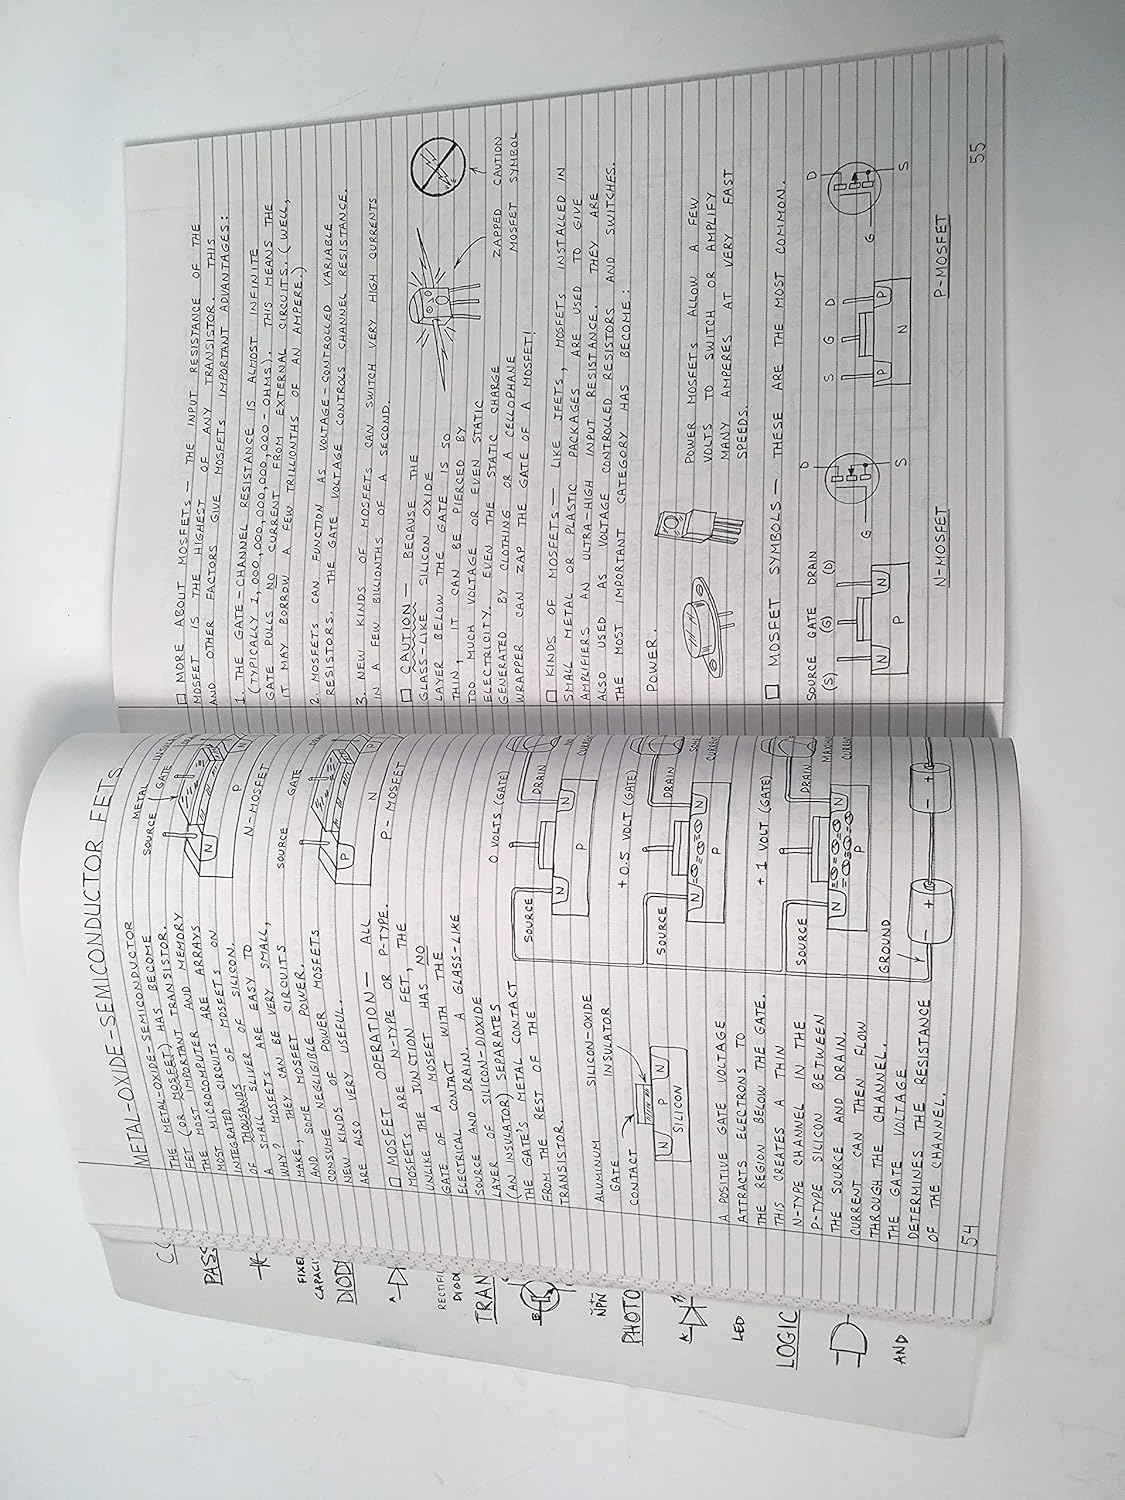 METAL-OXIDE-SEMICONDUCTOR FETS
METAL-OXIDE-SEMICONDUCTOR
THE METAL-OXIDE-SEMICONDUCTOR
FET (OR MOSFET) HAS BECOME
THE MOST IMPORTANT TRANSISTOR.
MOST MICROCOMPUTER AND MEMORY
INTEGRATED CIRCUITS ARE ARRAYS
OF THOUSANDS OF MOSFETS ON
A SMALL SLIVER OF SILICON.
WHY? MOSFETS ARE EASY TO
MAKE, THEY CAN BE VERY SMALL,
AND SOME MOSFET CIRCUITS
CONSUME NEGLIGIBLE POWER.
NEW KINDS OF POWER MOSFETS
ARE ALSO VERY USEFUL.
METAL
SOURCE
GATE
N
P
N-MOSFET
SOURCE
GATE
P
N
P-MOSFET
□ MOSFET OPERATION — ALL
MOSFETS ARE N-TYPE OR P-TYPE.
UNLIKE THE JUNCTION FET, THE
GATE OF A MOSFET HAS NO
ELECTRICAL CONTACT WITH THE
SOURCE AND DRAIN. A GLASS-LIKE
LAYER OF SILICON-DIOXIDE
(AN INSULATOR) SEPARATES
THE GATE'S METAL CONTACT
FROM THE REST OF THE
TRANSISTOR.
ALUMINUM
GATE
CONTACT
SILICON-OXIDE
INSULATOR
N P N
SILICON
A POSITIVE GATE VOLTAGE
ATTRACTS ELECTRONS TO
THE REGION BELOW THE GATE.
THIS CREATES A THIN
N-TYPE CHANNEL IN THE
P-TYPE SILICON BETWEEN
THE SOURCE AND DRAIN.
CURRENT CAN THEN FLOW
THROUGH THE CHANNEL.
THE GATE VOLTAGE
DETERMINES THE RESISTANCE
OF THE CHANNEL.
0 VOLTS (GATE)
SOURCE
DRAIN
N N
P
+0.5 VOLT (GATE)
SOURCE
DRAIN
N N
P
+1 VOLT (GATE)
SOURCE
DRAIN
N N
P
GROUND
- + - +
54
□ MORE ABOUT MOSFETS — THE INPUT RESISTANCE OF THE
MOSFET IS THE HIGHEST OF ANY TRANSISTOR. THIS
AND OTHER FACTORS GIVE MOSFETS IMPORTANT ADVANTAGES:
1. THE GATE-CHANNEL RESISTANCE IS ALMOST INFINITE
(TYPICALLY 1,000,000,000,000,000-OHMS). THIS MEANS THE
GATE PULLS NO CURRENT FROM EXTERNAL CIRCUITS. (WELL,
IT MAY BORROW A FEW TRILLIONTHS OF AN AMPERE.)
2. MOSFETS CAN FUNCTION AS VOLTAGE-CONTROLLED VARIABLE
RESISTORS. THE GATE VOLTAGE CONTROLS CHANNEL RESISTANCE.
3. NEW KINDS OF MOSFETS CAN SWITCH VERY HIGH CURRENTS
IN A FEW BILLIONTHS OF A SECOND.
□ CAUTION — BECAUSE THE
GLASS-LIKE SILICON OXIDE
LAYER BELOW THE GATE IS SO
THIN, IT CAN BE PIERCED BY
TOO MUCH VOLTAGE OR EVEN STATIC
ELECTRICITY. EVEN THE STATIC CHARGE
GENERATED BY CLOTHING OR A CELLOPHANE
WRAPPER CAN ZAP THE GATE OF A MOSFET!
ZAPPED
MOSFET
CAUTION
SYMBOL
□ KINDS OF MOSFETS — LIKE JFETS, MOSFETS INSTALLED IN
SMALL METAL OR PLASTIC PACKAGES ARE USED TO GIVE
AMPLIFIERS AN ULTRA-HIGH INPUT RESISTANCE. THEY ARE
ALSO USED AS VOLTAGE CONTROLLED RESISTORS AND SWITCHES.
THE MOST IMPORTANT CATEGORY HAS BECOME:
POWER.
POWER MOSFETS ALLOW A FEW
VOLTS TO SWITCH OR AMPLIFY
MANY AMPERES AT VERY FAST
SPEEDS.
□ MOSFET SYMBOLS — THESE ARE THE MOST COMMON.
SOURCE GATE DRAIN
(S) (G) (D)
N N
P
D
G
S
N-MOSFET
S G D
P P
N
D
G
S
P-MOSFET
55
PASS
DIOD
TRAN
B
NPN
PHOTO
LED
LOGIC
AND